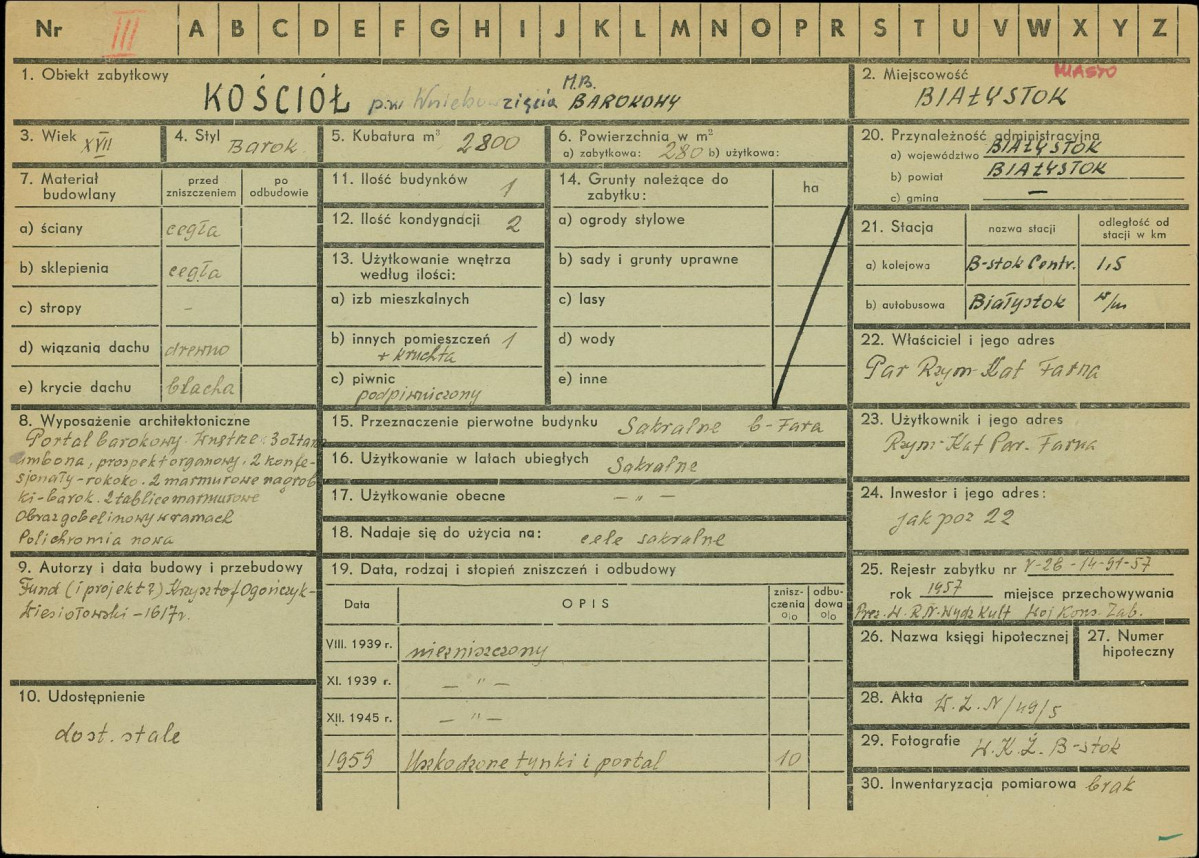 Nr III A B C D E F G H I J K L M N O P R S T U V W X Y Z
1. Obiekt zabytkowy
KOŚCIÓŁ p.w. Wniebowzięcia M.B. BAROKOWY
2. Miejscowość MIASTO
BIAŁYSTOK
3. Wiek XVII
4. Styl Barok
5. Kubatura m³ 2800
6. Powierzchnia w m²
a) zabytkowa: 280 b) użytkowa:
20. Przynależność administracyjna
a) województwo BIAŁYSTOK
b) powiat BIAŁYSTOK
c) gmina —
7. Materiał budowlany
przed zniszczeniem
po odbudowie
a) ściany cegła
b) sklepienia cegła
c) stropy -
d) wiązania dachu drewno
e) krycie dachu blacha
11. Ilość budynków 1
12. Ilość kondygnacji 2
13. Użytkowanie wnętrza
według ilości:
a) izb mieszkalnych
b) innych pomieszczeń 1
+ kruchta
c) piwnic
podpiwniczony
14. Grunty należące do
zabytku:
ha
a) ogrody stylowe
b) sady i grunty uprawne
c) lasy
d) wody
e) inne
21. Stacja
nazwa stacji
odległość od
stacji w km
a) kolejowa B-stok Centr. 1,5
b) autobusowa Białystok w/m
22. Właściciel i jego adres
Par Rzym-Kat Farna
8. Wyposażenie architektoniczne
Portal barokowy. Wnętrze: 3 ołtarze
ambona, prospekt organowy, 2 konfe-
sjonały - rokoko. 2 marmurowe nagrob
ki - barok. 2 tablice marmurowe
Obraz gobelinowy w ramach
Polichromia nowa
15. Przeznaczenie pierwotne budynku Sakralne b-Fara
16. Użytkowanie w latach ubiegłych Sakralne
17. Użytkowanie obecne — " —
18. Nadaje się do użycia na: cele sakralne
23. Użytkownik i jego adres
Rzym-Kat Par. Farna
24. Inwestor i jego adres:
jak poz 22
9. Autorzy i data budowy i przebudowy
Fund (i projekt?) Krzysztof Ogończyk-
Wiesiołowski - 1617r.
10. Udostępnienie
dost. stale
19. Data, rodzaj i stopień zniszczeń i odbudowy
Data
OPIS
znisz-
czenia
%
odbu-
dowa
%
VIII. 1939 r. niezniszczony
XI. 1939 r. — " —
XII. 1945 r. — " —
1959 Uszkodzone tynki i portal 10
25. Rejestr zabytku nr V-26-14-91-57
rok 1957 miejsce przechowywania
Prez. W.R.N. Wydz Kult Woj Kons. Zab.
26. Nazwa księgi hipotecznej
27. Numer
hipoteczny
28. Akta W. Z. N/49/5
29. Fotografie W.K.Z. B-stok
30. Inwentaryzacja pomiarowa brak